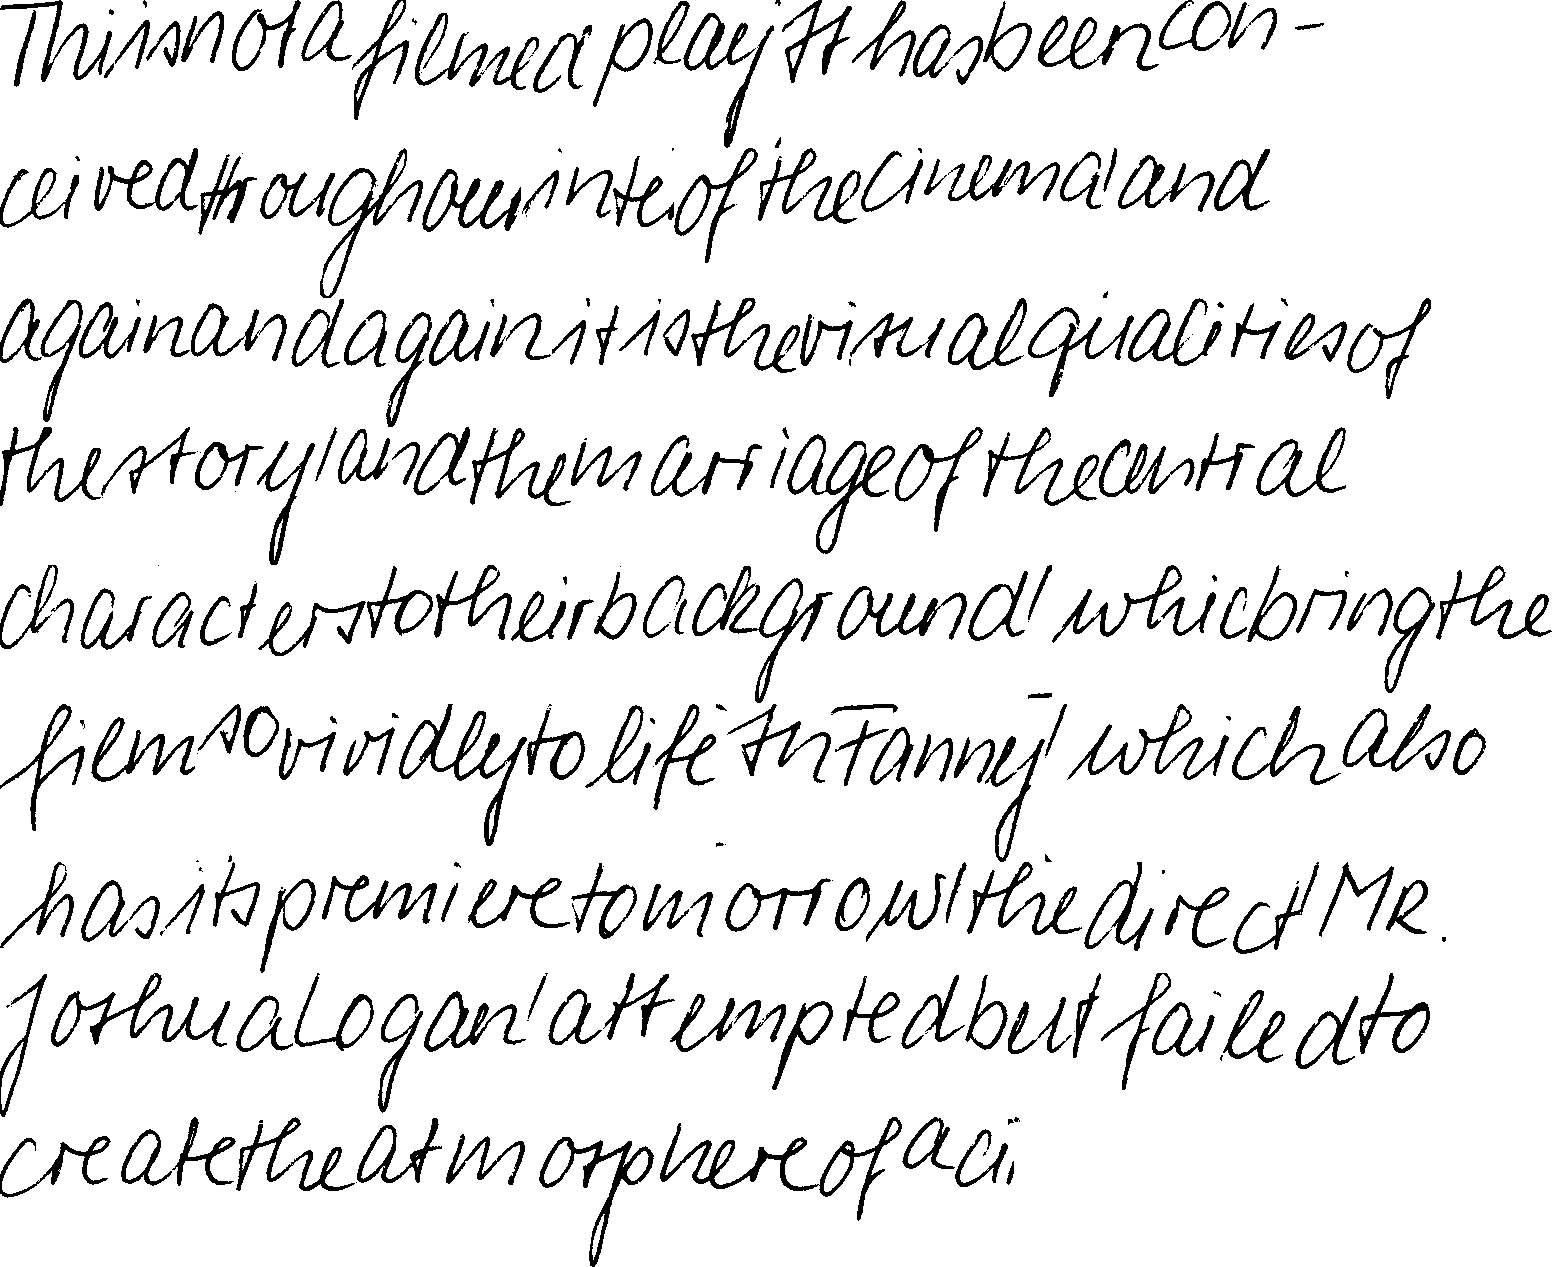 This is not a filmed play. It has been con-
ceived through our inte. of the cinema, and
again and again it is the visual qualities of
the story, and the marriage of the central
characters to their background, whic bring the
film so vividly to life. In "Fanny", which also
has its premiere tomorrow, the direct, MR.
Joshua Logan, attempted but failed to
create the atmosphere of a ci.